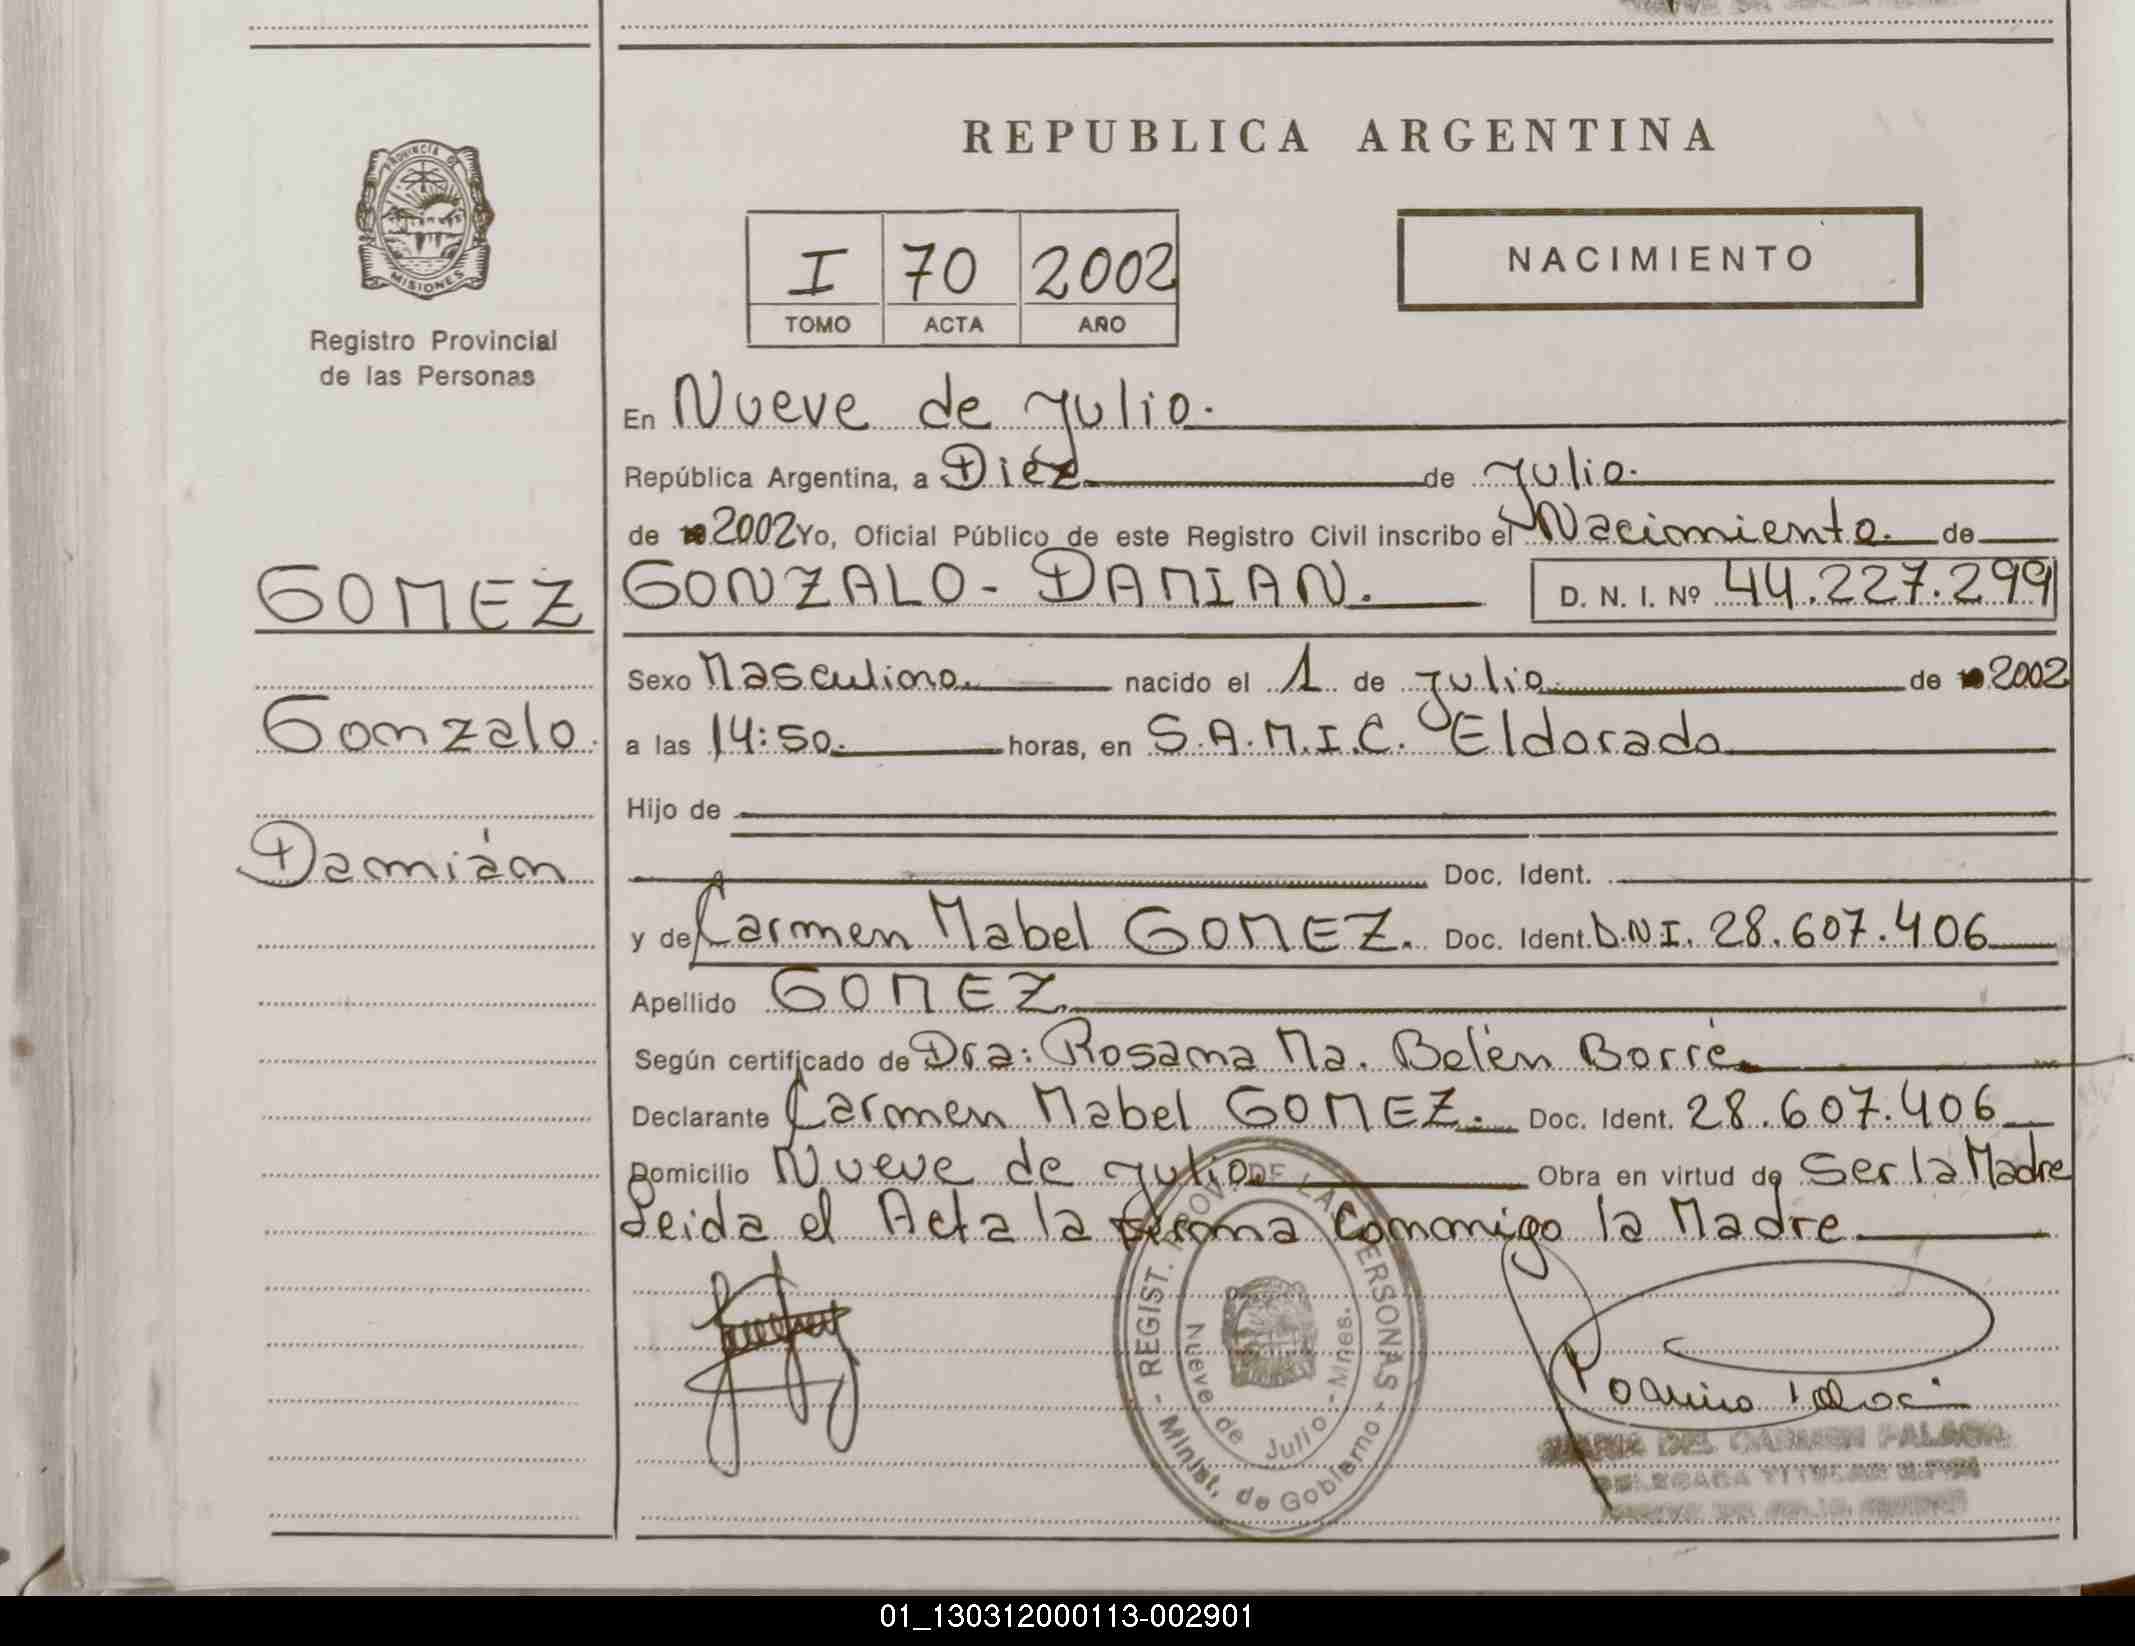 REPUBLICA ARGENTINA
PROVINCIA DE
MISIONES
Registro Provincial
de las Personas
I 70 2002
TOMO ACTA AÑO
NACIMIENTO
En Nueve de Julio.
República Argentina, a Diéz de Julio.
de 2002 Yo, Oficial Público de este Registro Civil inscribo el Nacimiento. de
GOMEZ
GONZALO - DAMIAN. D. N. I. Nº 44.227.299
Sexo Masculino. nacido el 1 de Julio de 2002
Gonzalo.
a las 14:50. horas, en S.A.M.I.C. Eldorado
Hijo de
Damián
Doc. Ident.
y de Carmen Mabel GOMEZ. Doc. Ident. D.N.I. 28.607.406
Apellido GOMEZ.
Según certificado de Dra: Rosana Ma. Belén Borré.
Declarante Carmen Mabel GOMEZ. Doc. Ident. 28.607.406
Domicilio Nueve de Julio Obra en virtud de Ser la Madre
Leida el Acta la firma Conmigo la Madre
REGIST. PROV. DE LAS PERSONAS
- Minist. de Gobierno -
Nueve de Julio - Mnes.
MARIA DEL CARMEN PALACIO
DELEGADA TITULAR
01_130312000113-002901